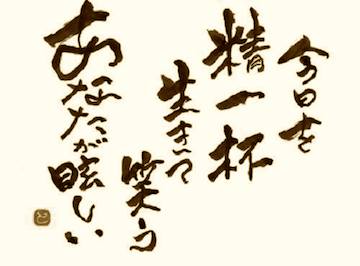 今日を
精一杯
生きて
笑う
あなたが眩しい